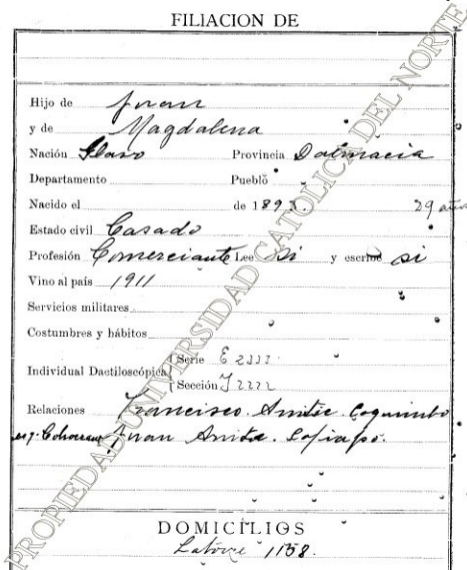 FILIACION DE
Hijo de Juan
y de Magdalena
Nación Slavo Provincia Dalmacia
Departamento Pueblo
Nacido el de 1893. 29 años
Estado civil Casado
Profesión Comerciante Lee si y escribe si
Vino al país 1911
Servicios militares
Costumbres y hábitos
Individual Dactiloscópica Serie E 2332
Sección I 2222
Relaciones Francisco Coquimbo
Juan Copiapó.
DOMICILIOS
Latorre 1158.
PROPIEDAD UNIVERSIDAD CATOLICA DEL NORTE